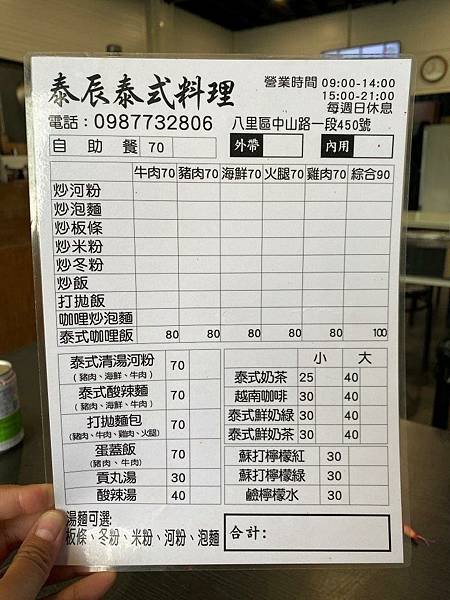 泰辰泰式料理
營業時間 09:00-14:00
15:00-21:00
每週日休息
電話：0987732806
八里區中山路一段450號
自助餐 70 外帶 內用
牛肉70 豬肉70 海鮮70 火腿70 雞肉70 綜合90
炒河粉
炒泡麵
炒板條
炒米粉
炒冬粉
炒飯
打拋飯
咖哩炒泡麵
泰式咖哩飯 80 80 80 80 80 100
泰式清湯河粉 70
(豬肉、海鮮、牛肉)
泰式酸辣麵 70
(豬肉、海鮮、牛肉)
打拋麵包 70
(豬肉、牛肉、雞肉、火腿)
蛋蓋飯 70
(豬肉、牛肉)
貢丸湯 30
酸辣湯 40
小 大
泰式奶茶 25 40
越南咖啡 30 40
泰式鮮奶綠 30 40
泰式鮮奶茶 30 40
蘇打檸檬紅 30
蘇打檸檬綠 30
鹹檸檬水 30
湯麵可選:
板條、冬粉、米粉、河粉、泡麵
合計: